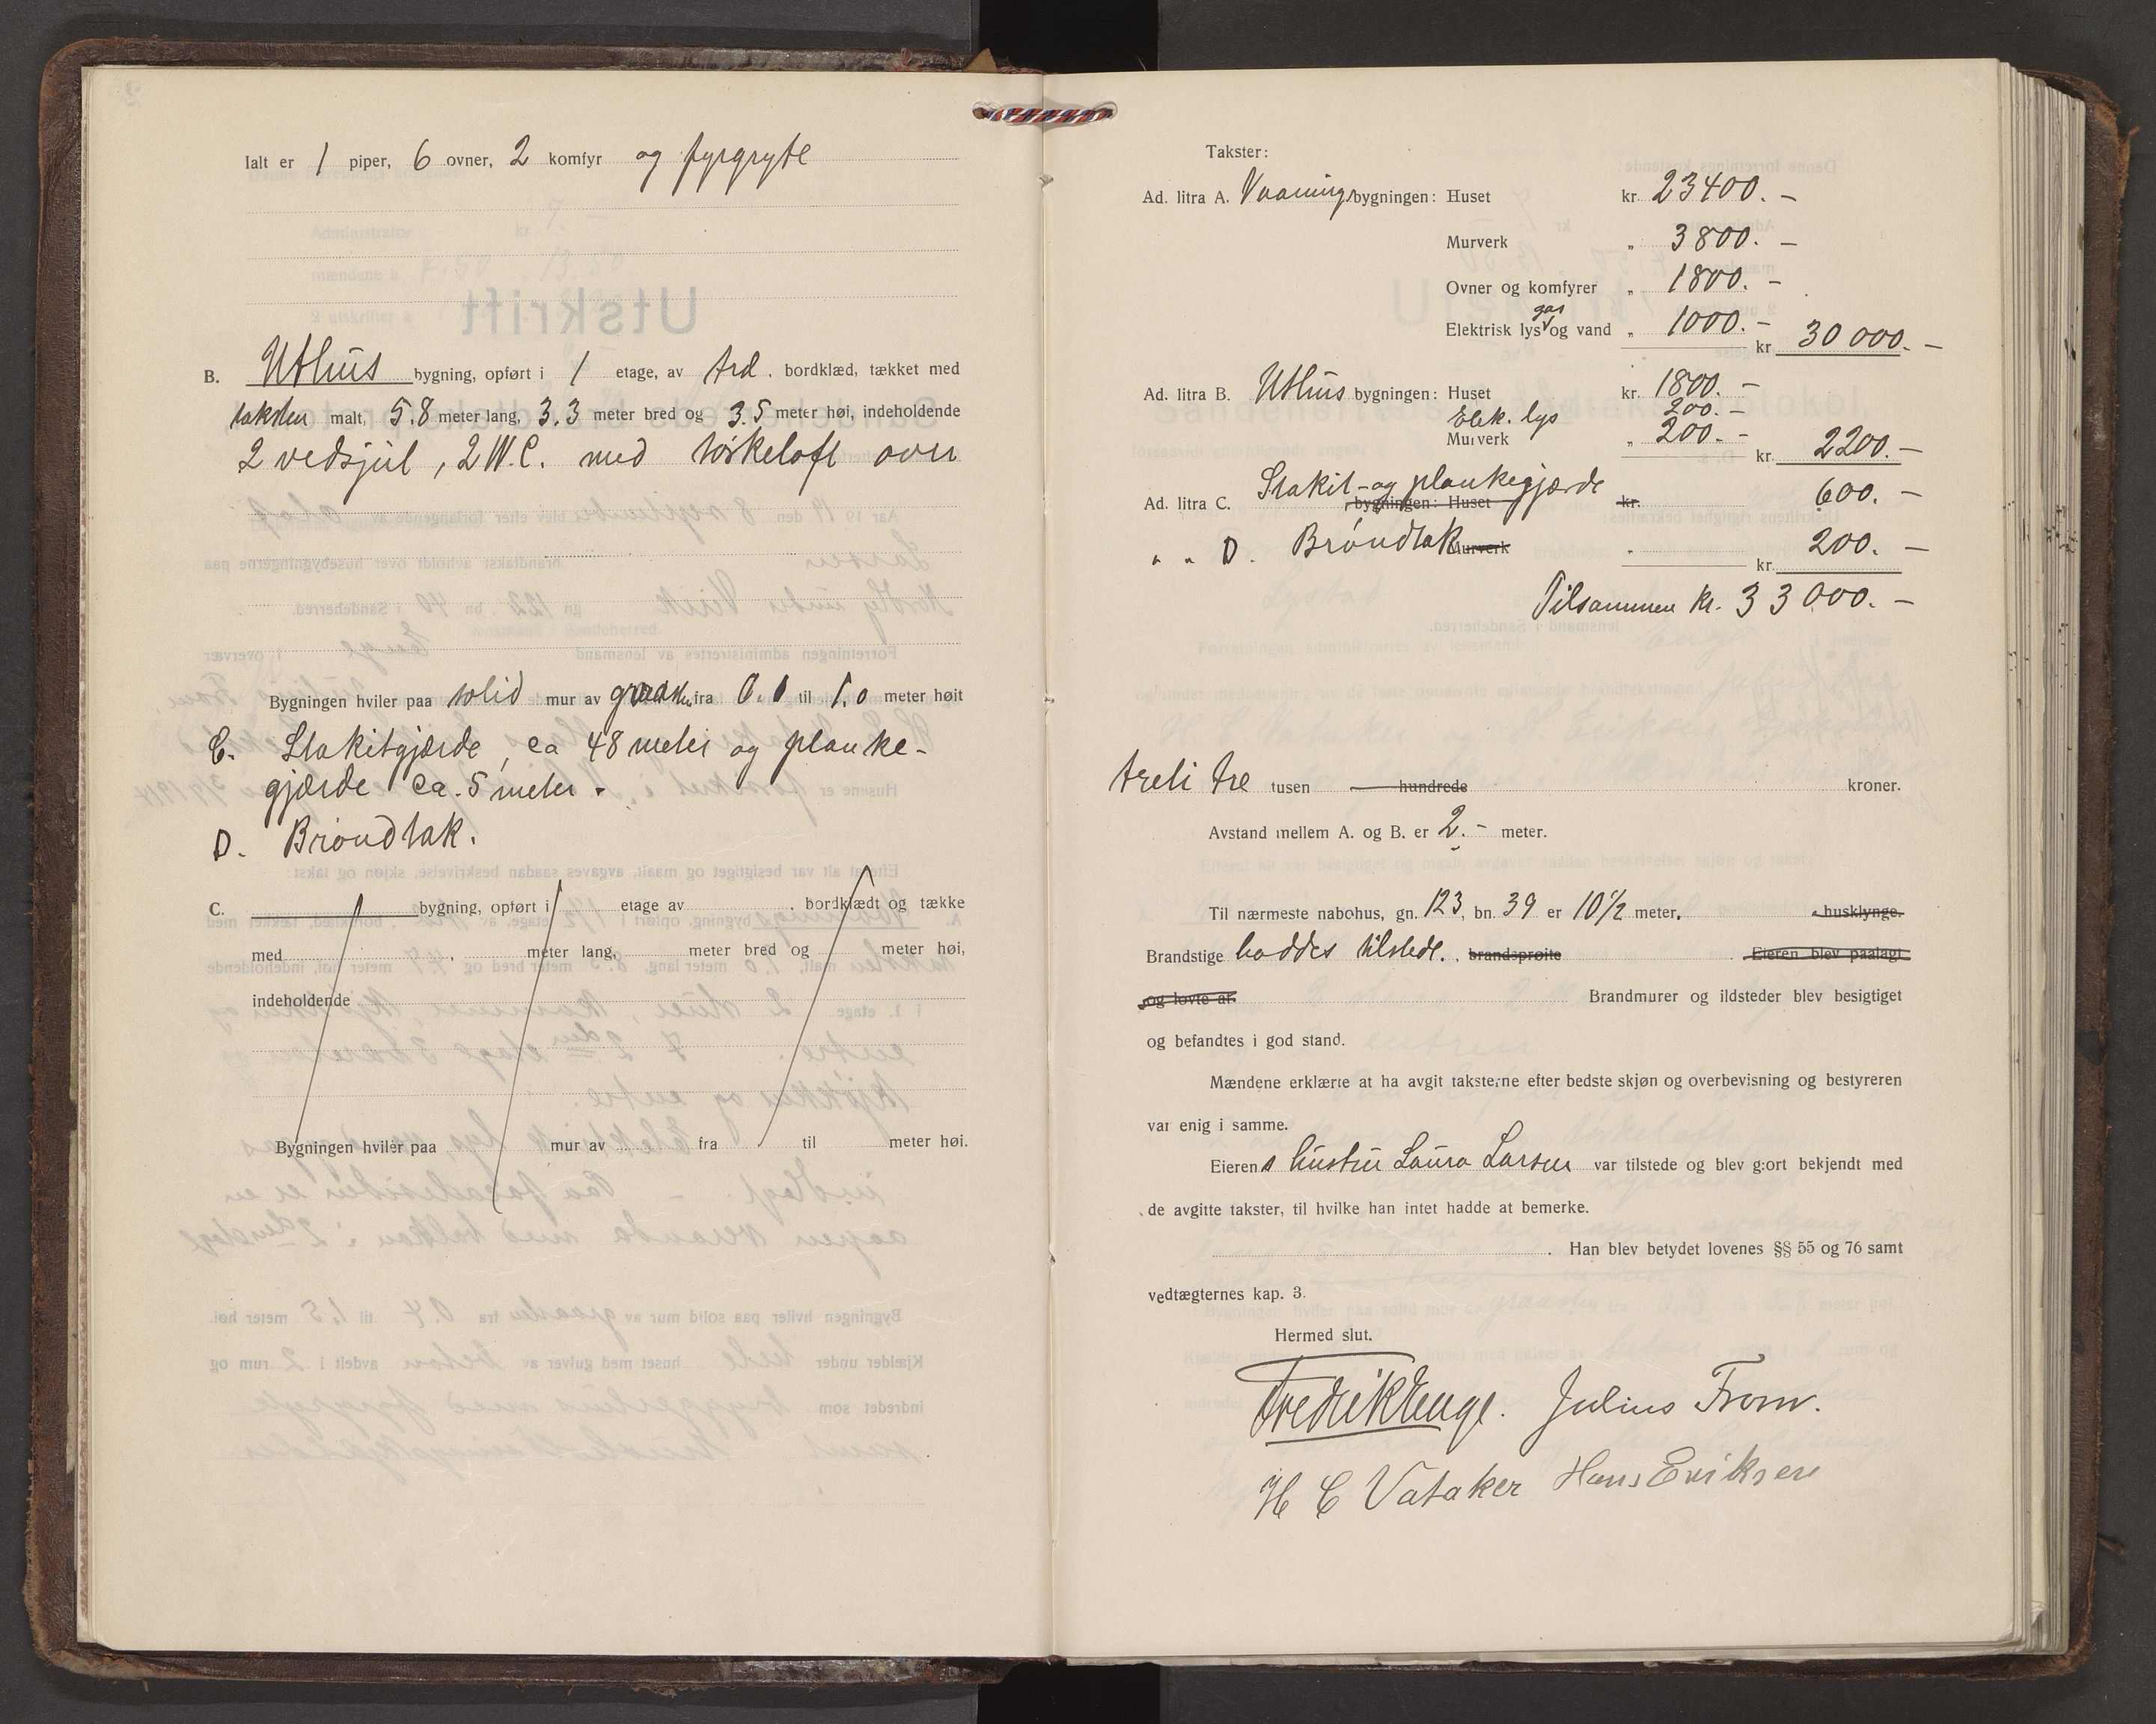 Ialt er 1 piper, 6 ovner, 2 komfyr og fyrgryte
B. Uthus bygning, opført i 1 etage, av træ. bordklæd, tækket med
taksten malt, 5.8 meter lang, 3.3 meter bred og 3.5 meter høi, indeholdende
2 vedsjul, 2 W.C. med tørkeloft over
Bygningen hviler paa solid mur av graasten fra 0.1 til 1.0 meter høit
C. Stakitgjærde, ca 48 meter og planke-
gjærde ca. 5 meter.
D. Brøndtak.
C. bygning, opført i etage av . bordklædt og tække
med , meter lang, meter bred og meter høi,
indeholdende
Bygningen hviler paa mur av fra til meter høi.
Takster:
Ad. litra A. Vaanings bygningen: Huset kr. 23400. –
Murverk „ 3800. –
Ovner og komfyrer „ 1800. –
Elektrisk lys gas og vand „ 1000. – kr 30 000. –
Ad. litra B. Uthus bygningen: Huset kr. 1800. –
Elek. lys 200. –
Murverk „ 200. – kr. 2200. –
Ad. litra C. Stakit- og plankegjærde bygningen: Huset kr. 600. –
„ „ D. Brøndtak Murverk „ kr. 200. –
Tilsammen kr. 33000. –
treti tre tusen hundrede kroner.
Avstand mellem A. og B. er 2. – meter.
Til nærmeste nabohus, gn. 123, bn. 39 er 10½ meter, husklynge.
Brandstige haddes tilstede. , brandsprøite Eieren blev paalagt
og lovte at Brandmurer og ildsteder blev besigtiget
og befandtes i god stand.
Mændene erklærte at ha avgit taksterne efter bedste skjøn og overbevisning og bestyreren
var enig i samme.
Eieren s hustru Laura Larsen var tilstede og blev gjort bekjendt med
de avgitte takster, til hvilke han intet hadde at bemerke.
. Han blev betydet lovenes §§ 55 og 76 samt
vedtægternes kap. 3.
Hermed slut.
Fredrik Enge. Julius From.
H C Vataker Hans Eriksen